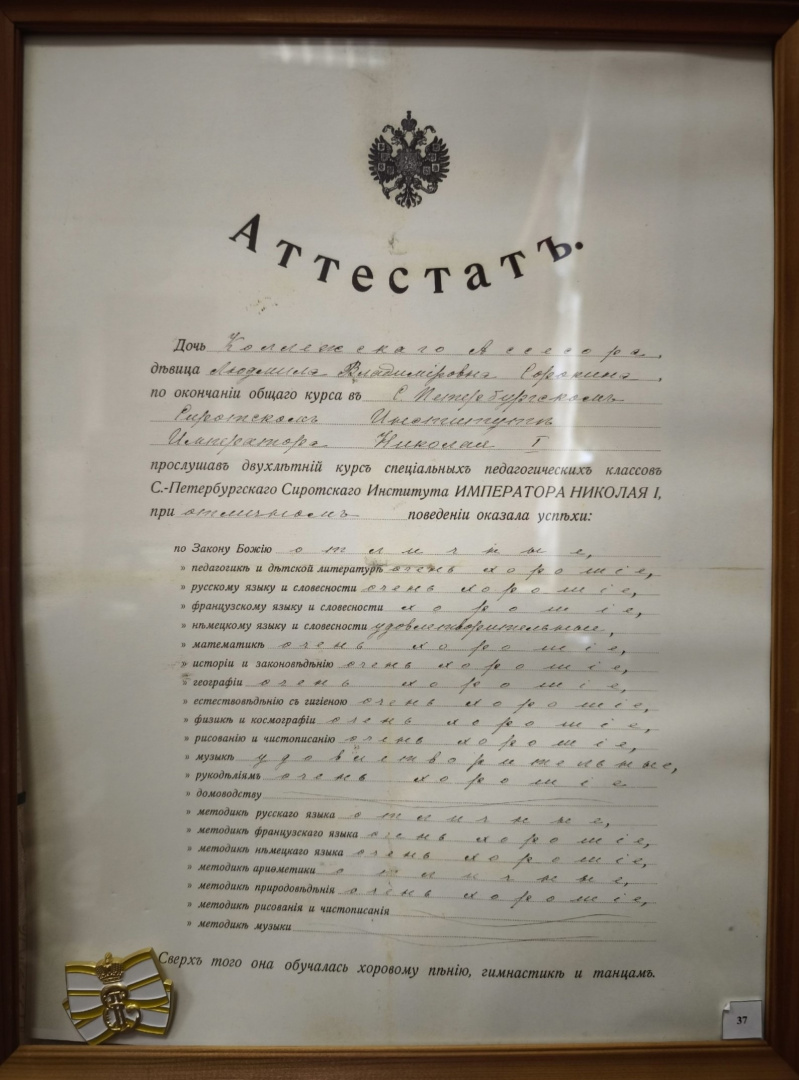 Аттестатъ.
Дочь Коллежскаго Ассесора,
дѣвица Людмила Владиміровна Сорокина,
по окончаніи общаго курса въ С Петербургскомъ
Сиротскомъ Институтѣ
Императора Николая I
прослушавъ двухлѣтній курсъ спеціальныхъ педагогическихъ классовъ
С.-Петербургскаго Сиротскаго Института ИМПЕРАТОРА НИКОЛАЯ I,
при отличномъ поведеніи оказала успѣхи:
по Закону Божію отличные,
» педагогикѣ и дѣтской литературѣ очень хорошіе,
» русскому языку и словесности очень хорошіе,
» французскому языку и словесности хорошіе,
» нѣмецкому языку и словесности удовлетворительные,
» математикѣ очень хорошіе,
» исторіи и законовѣдѣнію очень хорошіе,
» географіи очень хорошіе,
» естествовѣдѣнію съ гигіеною очень хорошіе,
» физикѣ и космографіи очень хорошіе,
» рисованію и чистописанію очень хорошіе,
» музыкѣ удовлетворительные,
» рукодѣліямъ очень хорошіе
» домоводству
» методикѣ русскаго языка отличные,
» методикѣ французскаго языка очень хорошіе,
» методикѣ нѣмецкаго языка очень хорошіе,
» методикѣ ариѳметики отличные,
» методикѣ природовѣдѣнія очень хорошіе,
» методикѣ рисованія и чистописанія
» методикѣ музыки
Сверхъ того она обучалась хоровому пѣнію, гимнастикѣ и танцамъ.
37